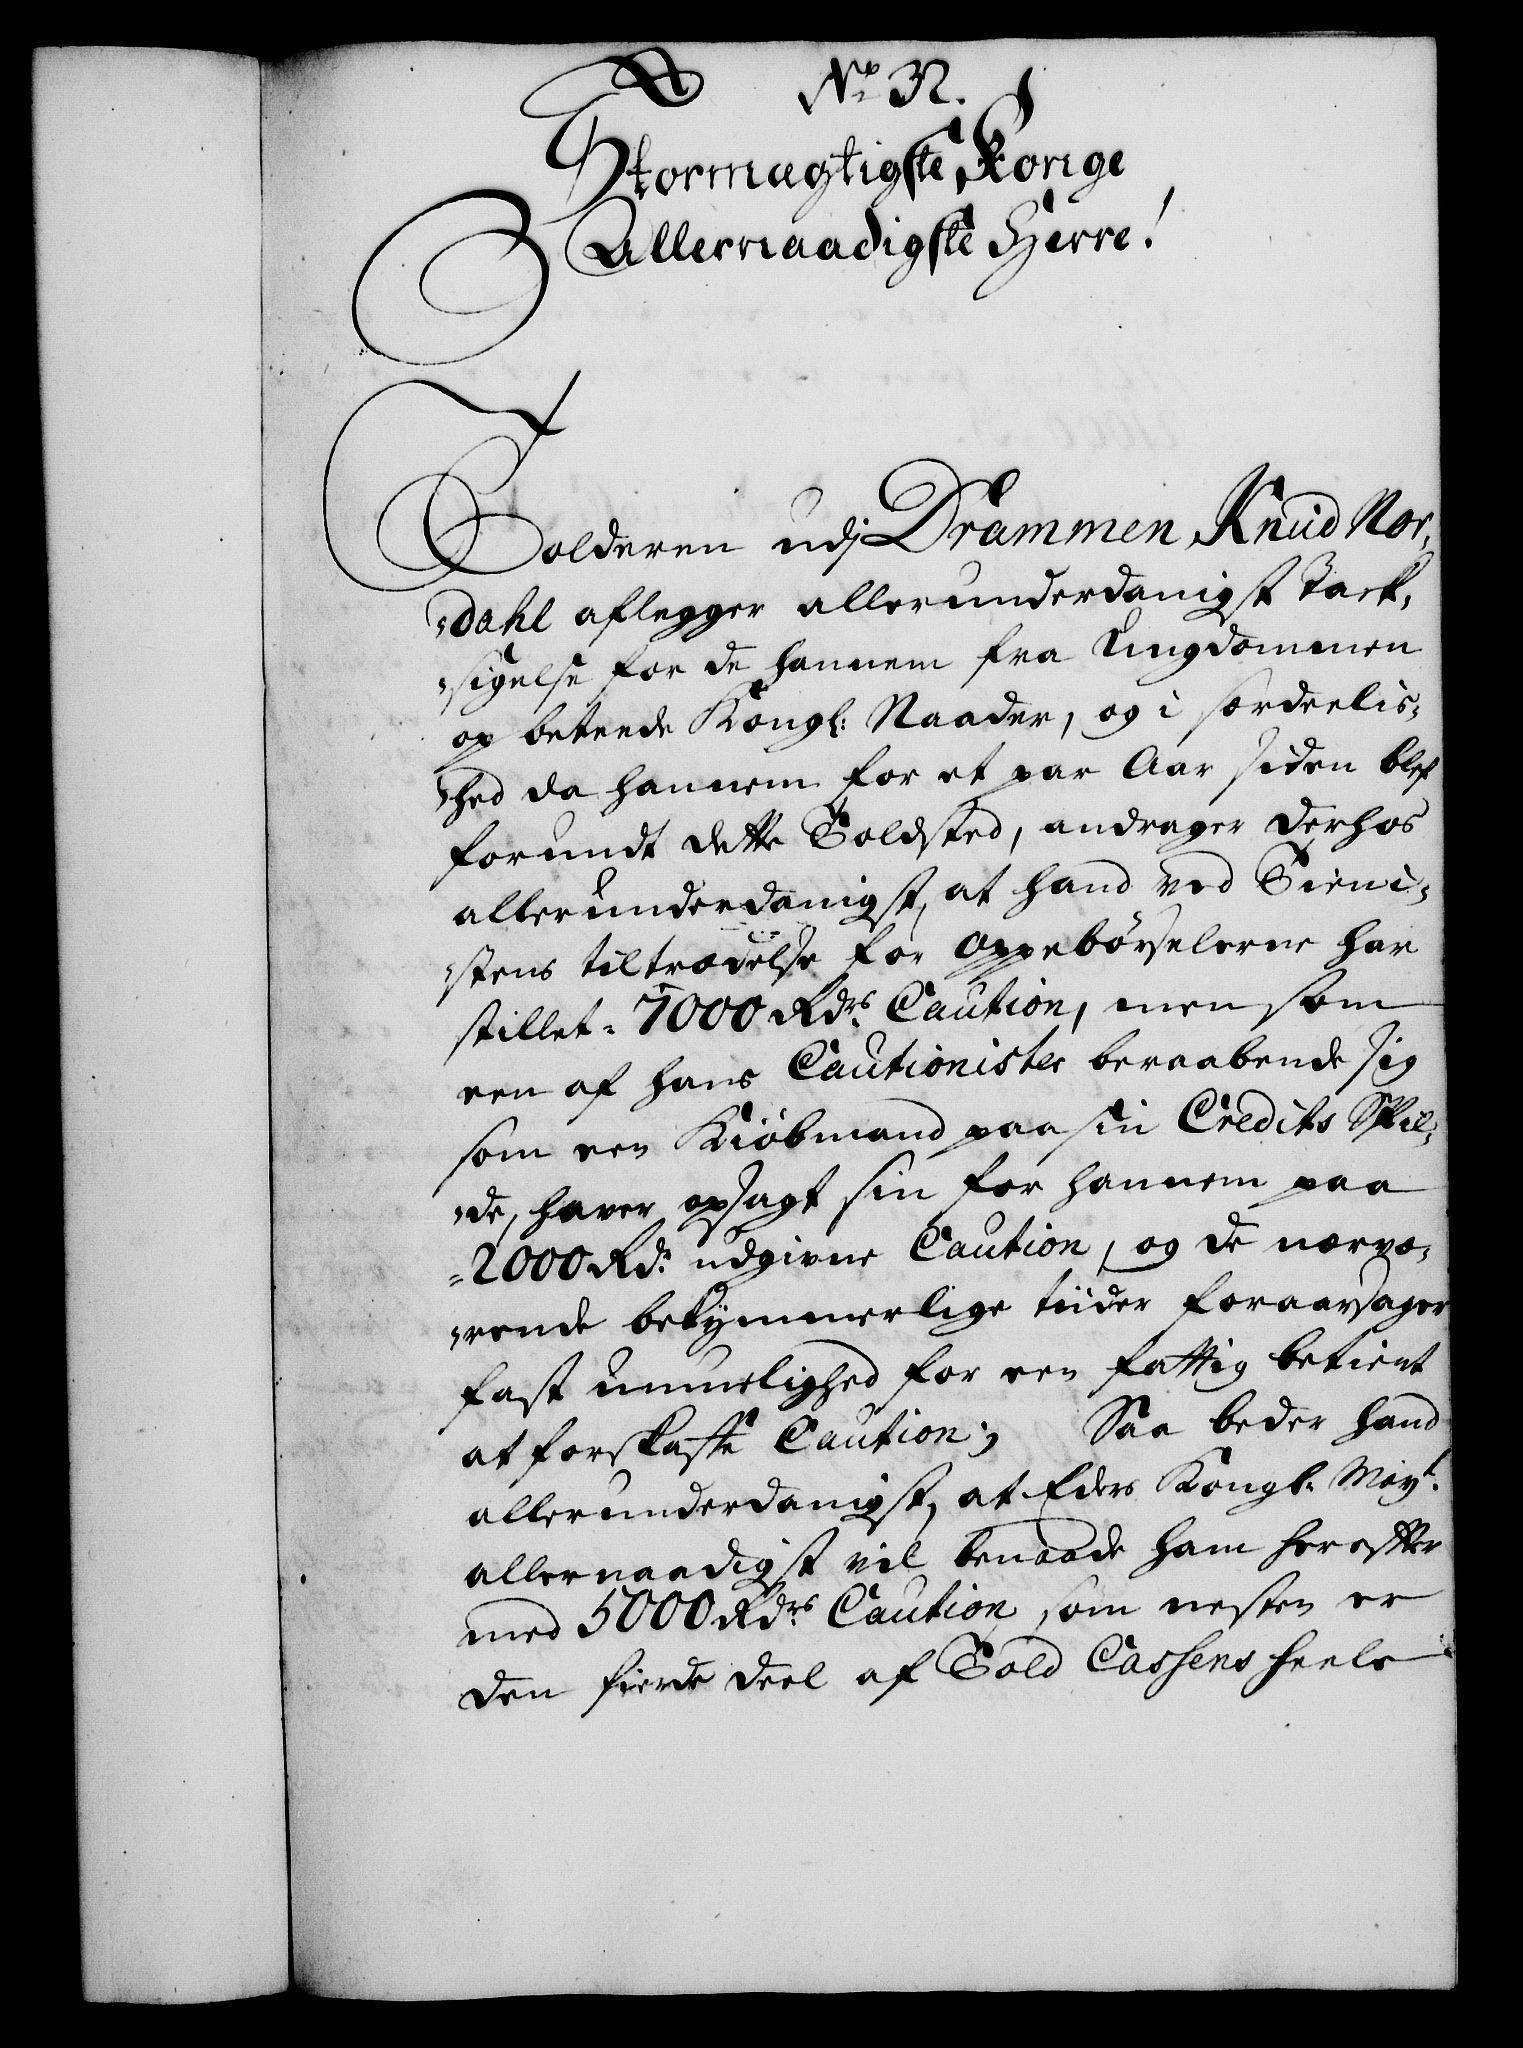 No 32.
Stormægtigste Konge
Allernaadigste Herre!
Tolderen udj Drammen, Knud Nor,
-dahl aflegger allerunderdanigst Tack,
-sigelse for de hannem fra Ungdommen
op beteede Kongl: Naader, og i særdeelis-
-hed da hannem for et par Aar siden blef
forundt dette Toldsted, andrager derhos
allerunderdanigst, at hand ved Tieni-
-stens tiltrædelse for oppebørselerne har
stillet 7000 Rdrs Caution, men som
een af hans Cautionister beraabende sig
som een Kiøbmand paa sin Credits Skil-
-de, haver opsagt sin for hannem paa
2000 Rdr udgivne Caution, og de nærvæ-
-rende bekymmerlige tiider foraarsager
fast umuelighed for een fattig betient
at forskaffe Caution; Saa beder hand
allerunderdanigst, at Eders Kongl. Mayt.
allernaadigst vil benaade ham herefter
med 5000 Rdrs Caution, som nesten er
den fierde deel af Told Cassens heele